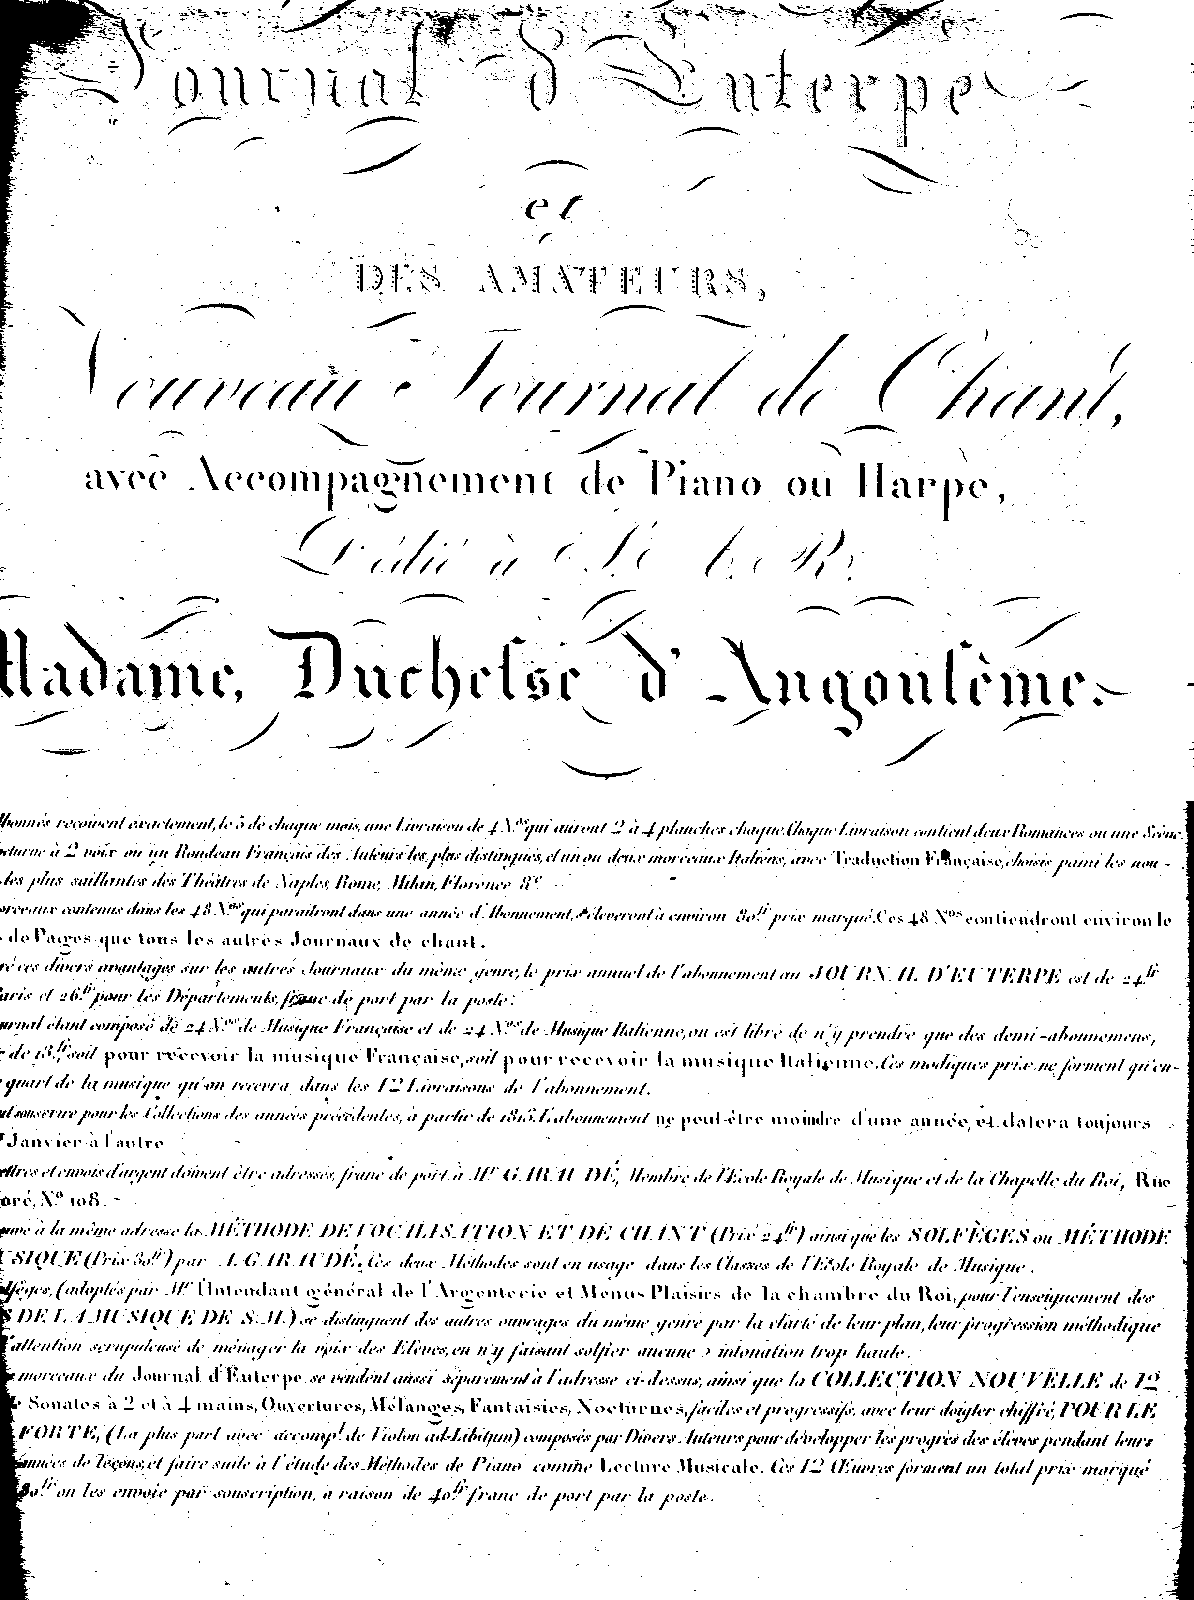 Journal d'Euterpe
et
DES AMATEURS,
Nouveau Journal de Chant,
avec Accompagnement de Piano ou Harpe,
Dédié à S. A. R.
Madame, Duchesse d'Angoulême.
bonnés reçoivent exactement, le 5 de chaque mois, une Livraison de 4 N.os qui auront 2 à 4 planches chaque. Chaque Livraison contient deux Romances ou une Scène,
octurne à 2 voix ou un Rondeau Français des Auteurs les plus distingués, et un ou deux morceaux Italiens, avec Traduction Française, choisis parmi les nou-
les plus saillantes des Théâtres de Naples, Rome, Milan, Florence &c.
orceaux contenus dans les 48 N.os qui paraîtront dans une année d'Abonnement, s'éleveront à environ 80fr prix marqué. Ces 48 N.os contiendront environ le
de Pages que tous les autres Journaux de chant.
ré ces divers avantages sur les autres Journaux du même genre, le prix annuel de l'abonnement au JOURNAL D'EUTERPE est de 24.fr
aris et 26.fr pour les Départements, franc de port par la poste.
urnal étant composé de 24 N.os de Musique Française et de 24 N.os de Musique Italienne, on est libre de n'y prendre que des demi-abonnemens,
de 13.fr soit pour recevoir la musique Française, soit pour recevoir la musique Italienne. Ces modiques prix ne forment qu'en-
quart de la musique qu'on recevra dans les 12 Livraisons de l'abonnement.
ut souscrire pour les Collections des années précédentes, à partir de 1813. L'abonnement ne peut-être moindre d'une année, et datera toujours
Janvier à l'autre
ettres et envois d'argent doivent être adressés, franc de port à Mr GARAUDÉ, Membre de l'Ecole Royale de Musique et de la Chapelle du Roi, Rue
oré, N.o 108.
uve à la même adresse la MÉTHODE DE VOCALISATION ET DE CHANT (Prix 24fr) ainsi que les SOLFÈGES ou MÉTHODE
USIQUE (Prix 30fr) par A. GARAUDÉ. Ces deux Méthodes sont en usage dans les Classes de l'Ecole Royale de Musique.
lfèges, (adoptés par Mr l'Intendant général de l'Argenterie et Menus Plaisirs de la chambre du Roi, pour l'enseignement des
S DE LA MUSIQUE DE S.M.) se distinguent des autres ouvrages du même genre par la clarté de leur plan, leur progression méthodique
l'attention scrupuleuse de ménager la voix des Elèves, en n'y faisant solfier aucune intonation trop haute.
morceaux du Journal d'Euterpe se vendent aussi séparément à l'adresse ci-dessus, ainsi que la COLLECTION NOUVELLE de 12
Sonates à 2 et à 4 mains, Ouvertures, Mélanges, Fantaisies, Nocturnes, faciles et progressifs, avec leur doigter chiffré, POUR LE
FORTE, (La plus part avec accomp.t de Violon ad-Libitum) composés par Divers Auteurs pour développer les progrès des élèves pendant leurs
années de leçons, et faire suite à l'étude des Méthodes de Piano comme Lecture Musicale. Ces 12 Œuvres forment un total prix marqué
80fr on les envoie par souscription, à raison de 40fr franc de port par la poste.